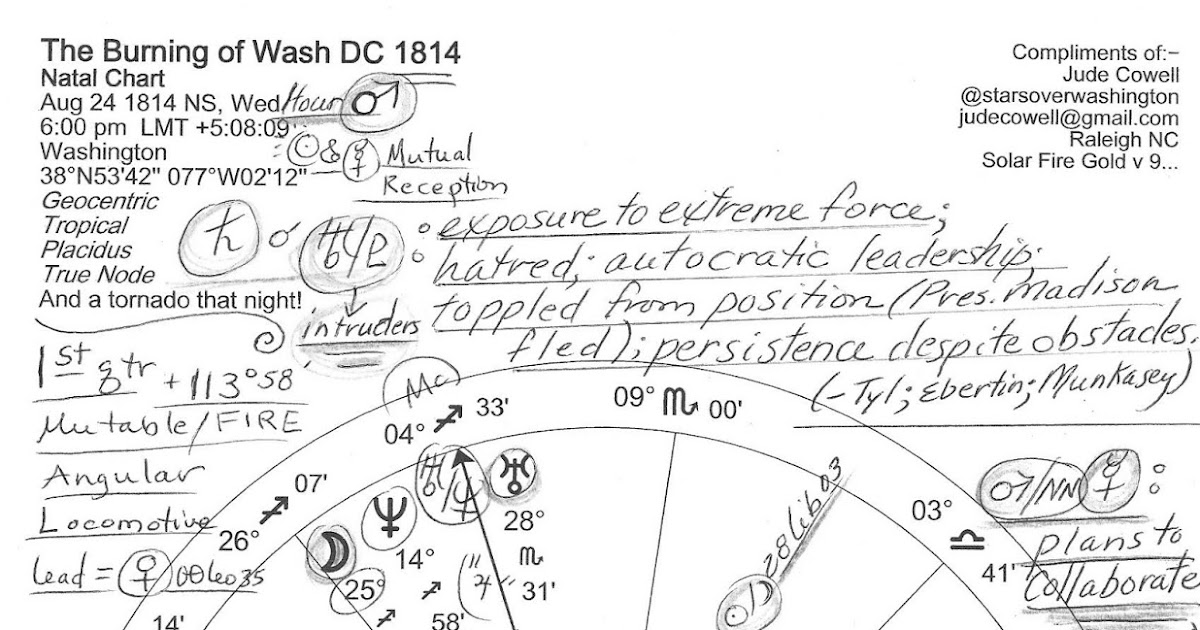 The Burning of Wash DC 1814
Natal Chart
Aug 24 1814 NS, Wed Hour ♂
6:00 pm LMT +5:08:09
Washington
38°N53'42" 077°W02'12"
Geocentric
Tropical
Placidus
True Node
And a tornado that night!
Compliments of:-
Jude Cowell
@starsoverwashington
judecowell@gmail.com
Raleigh NC
Solar Fire Gold v 9...
☉ & ☿ Mutual
Reception
♄ ☌ ♅/♇ : exposure to extreme force;
hatred; autocratic leadership;
toppled from position (Pres. Madison
fled); persistence despite obstacles.
(-Tyl; Ebertin; Munkasey)
intruders
1st qtr +113°58
Mutable/FIRE
Angular
Locomotive
Lead = ♀ 00 Leo 35
MC
04° ♐ 33'
09° ♏ 00'
26° ♐ 07'
03° ♎ 41'
♅
28°
♏
31'
♆
14°
♐
58'
☽
25°
♐
14'
"♃"
28 Lib 03
☉/☽
♂/NN ☿ :
plans to
collaborate